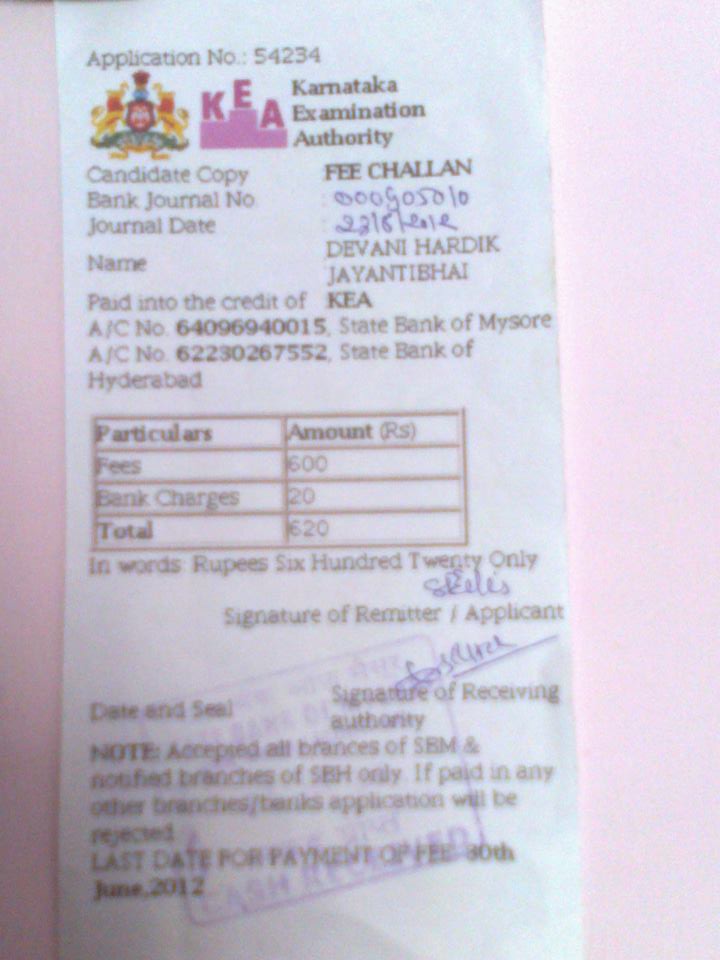 Application No.: 54234
KEA
Karnataka
Examination
Authority
Candidate Copy FEE CHALLAN
Bank Journal No :
Journal Date : 22/6/2012
Name DEVANI HARDIK
JAYANTIBHAI
Paid into the credit of KEA
A/C No. 64096940015, State Bank of Mysore
A/C No. 62230267552, State Bank of
Hyderabad
Particulars Amount (Rs)
Fees 600
Bank Charges 20
Total 620
In words: Rupees Six Hundred Twenty Only
Signature of Remitter / Applicant
Date and Seal Signature of Receiving
authority
NOTE: Accepted all brances of SBM &
notified branches of SBH only. If paid in any
other branches/banks application will be
rejected.
LAST DATE FOR PAYMENT OF FEE 30th
June,2012
CASH RECEIVED